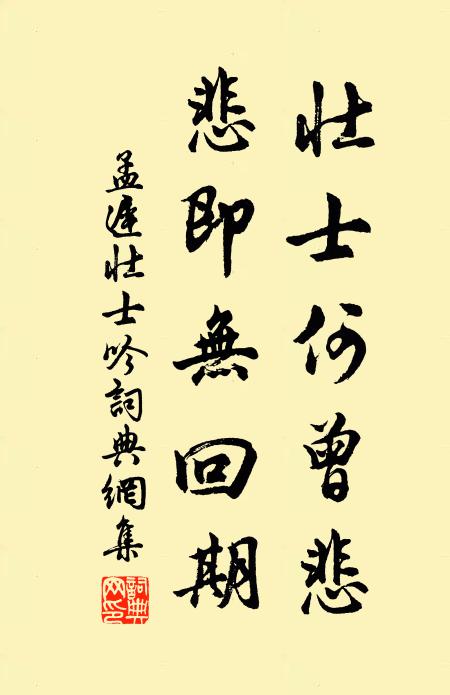 壮士何曾悲
悲即無回期
孟遲壮士吟詞典網集
詞典
网印